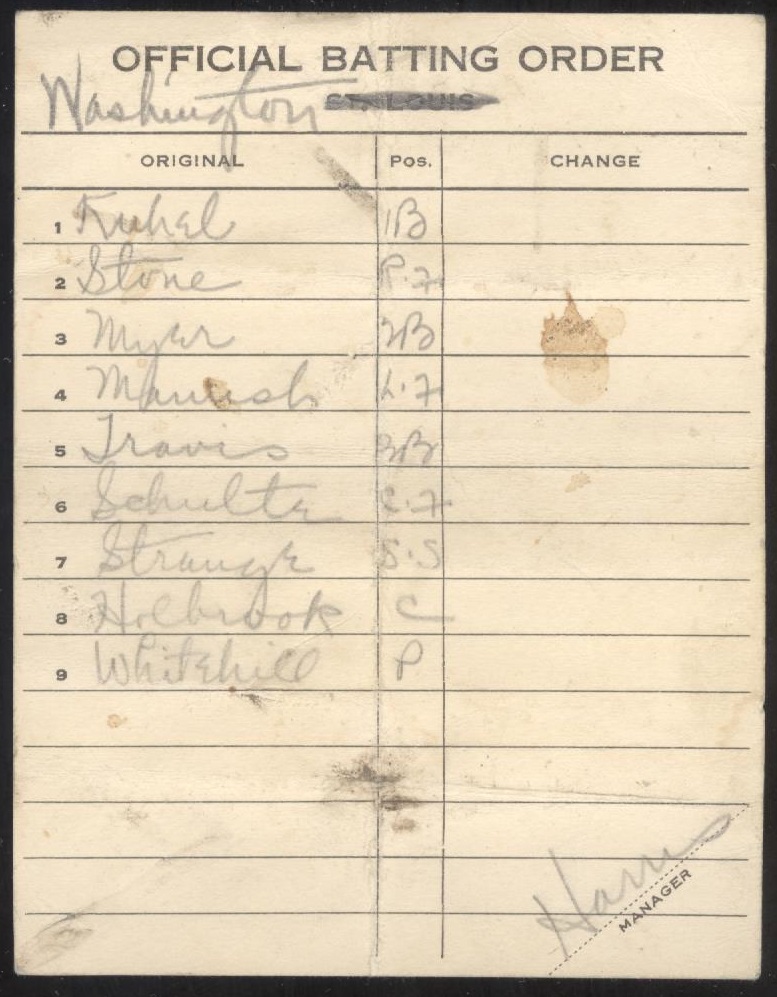 OFFICIAL BATTING ORDER
Washington ST. LOUIS
ORIGINAL Pos. CHANGE
1 Kuhel 1B
2 Stone R.F
3 Myer 2B
4 Manush L.F
5 Travis 3B
6 Schulte C.F
7 Strange S.S
8 Holbrook C
9 Whitehill P
Harris
MANAGER